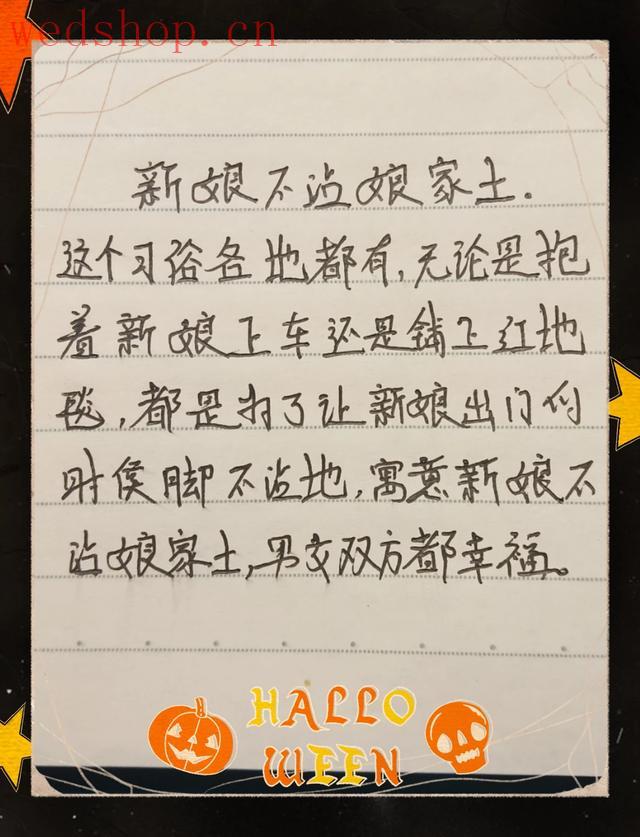 wedshop.cn
新娘不沾娘家土.
这个习俗各地都有,无论是抱
着新娘上车还是铺上红地
毯,都是为了让新娘出门的
时侯脚不沾地,寓意新娘不
沾娘家土,男女双方都幸福。
HALLO
WEEN